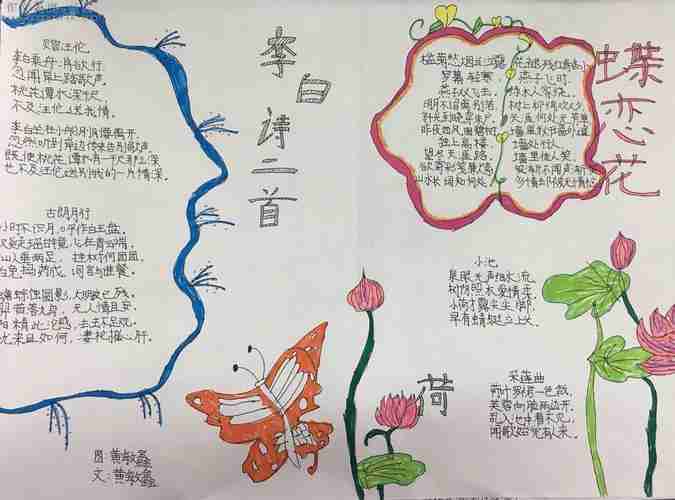 赠汪伦
李白乘舟将欲行
忽闻岸上踏歌声
桃花潭水深千尺
不及汪伦送我情
忽然听到岸边传来告别歌声
既使桃花潭水有一千尺那么深
也不及汪伦送别我的一片情深
古朗月行
小时不识月，呼作白玉盘。
又疑瑶台镜，飞在青云端。
仙人垂两足，桂树何团团。
白兔捣药成，问言与谁餐。
蟾蜍蚀圆影，大明夜已残。
羿昔落九乌，天人清且安。
阴精此沦惑，去去不足观。
忧来其如何，凄怆摧心肝。
图：黄敏鑫
文：黄敏鑫
李白诗二首
蝶恋花
槛菊愁烟兰泣露
罗幕轻寒，
燕子双飞去，
明月不谙离别苦
斜光到晓穿朱户。
昨夜西风凋碧树
独上高楼，
望尽天涯路，
欲寄彩笺兼尺素
山水长阔知何处。
花褪残红青杏小
燕子飞时，
绿水人家绕。
枝上柳绵吹又少
天涯何处无芳草
墙里秋千墙外道
墙外行人，
墙里佳人笑，
笑渐不闻声渐悄
多情却被无情恼
小池
泉眼无声惜水流
树阴照水爱情柔
小荷才露尖尖脚
早有蜻蜓立上头
荷
采莲曲
荷叶罗裙一色裁，
芙蓉向脸两边开，
乱入池中看不见，
闻歌始觉有人来。